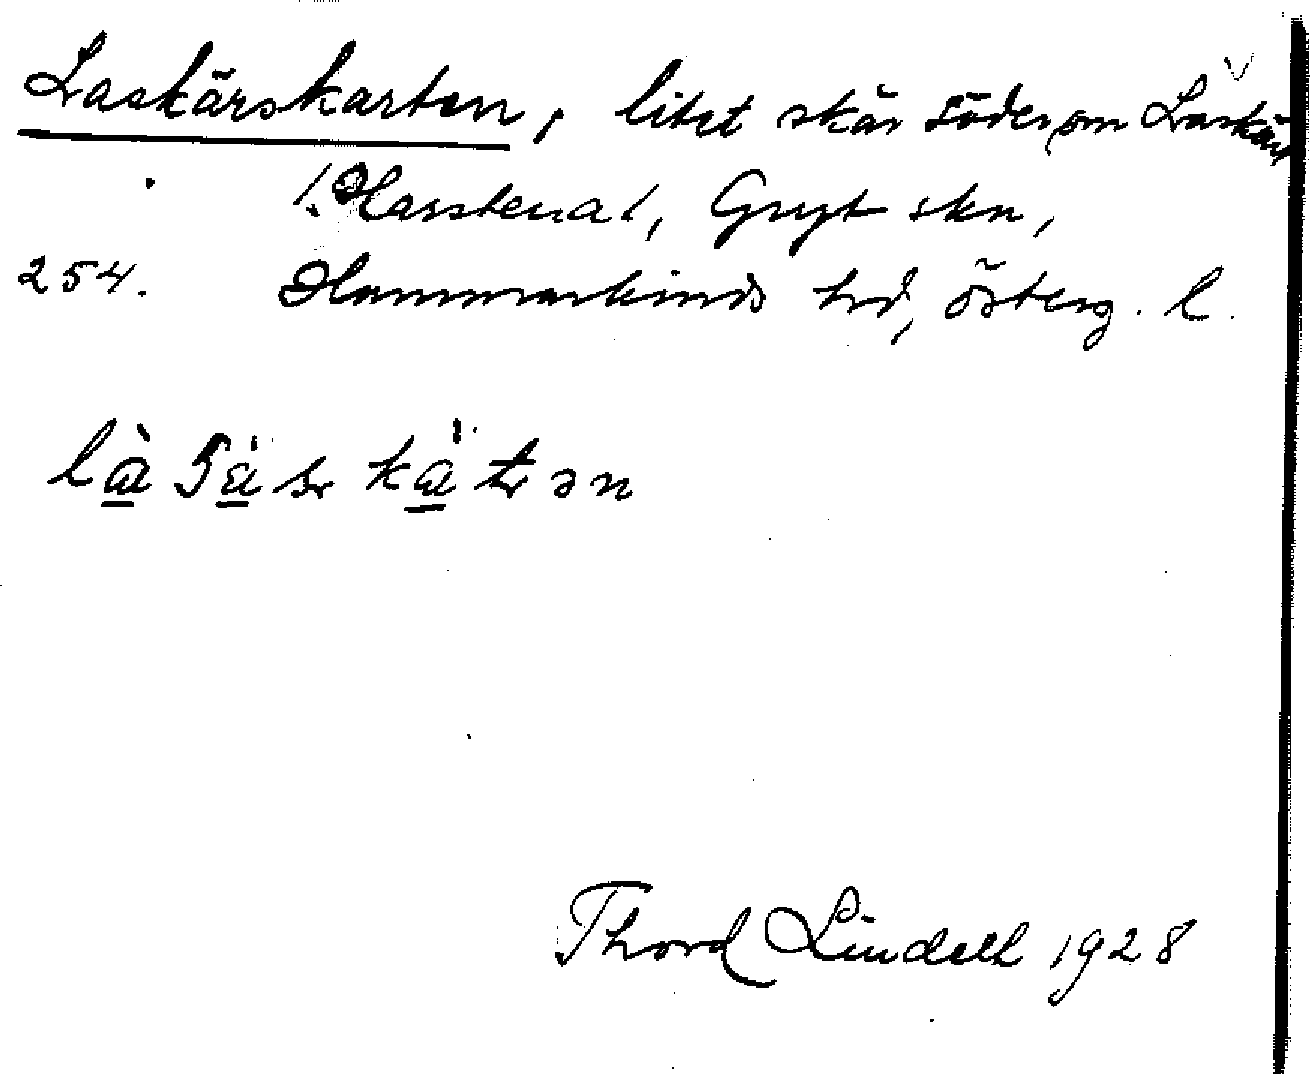 Laskärskarten, litet skär söder om Laskär
/. Harstena/, Gryt skn,
254. Hammarkinds hd, österg. l.
Thord Lindell 1928